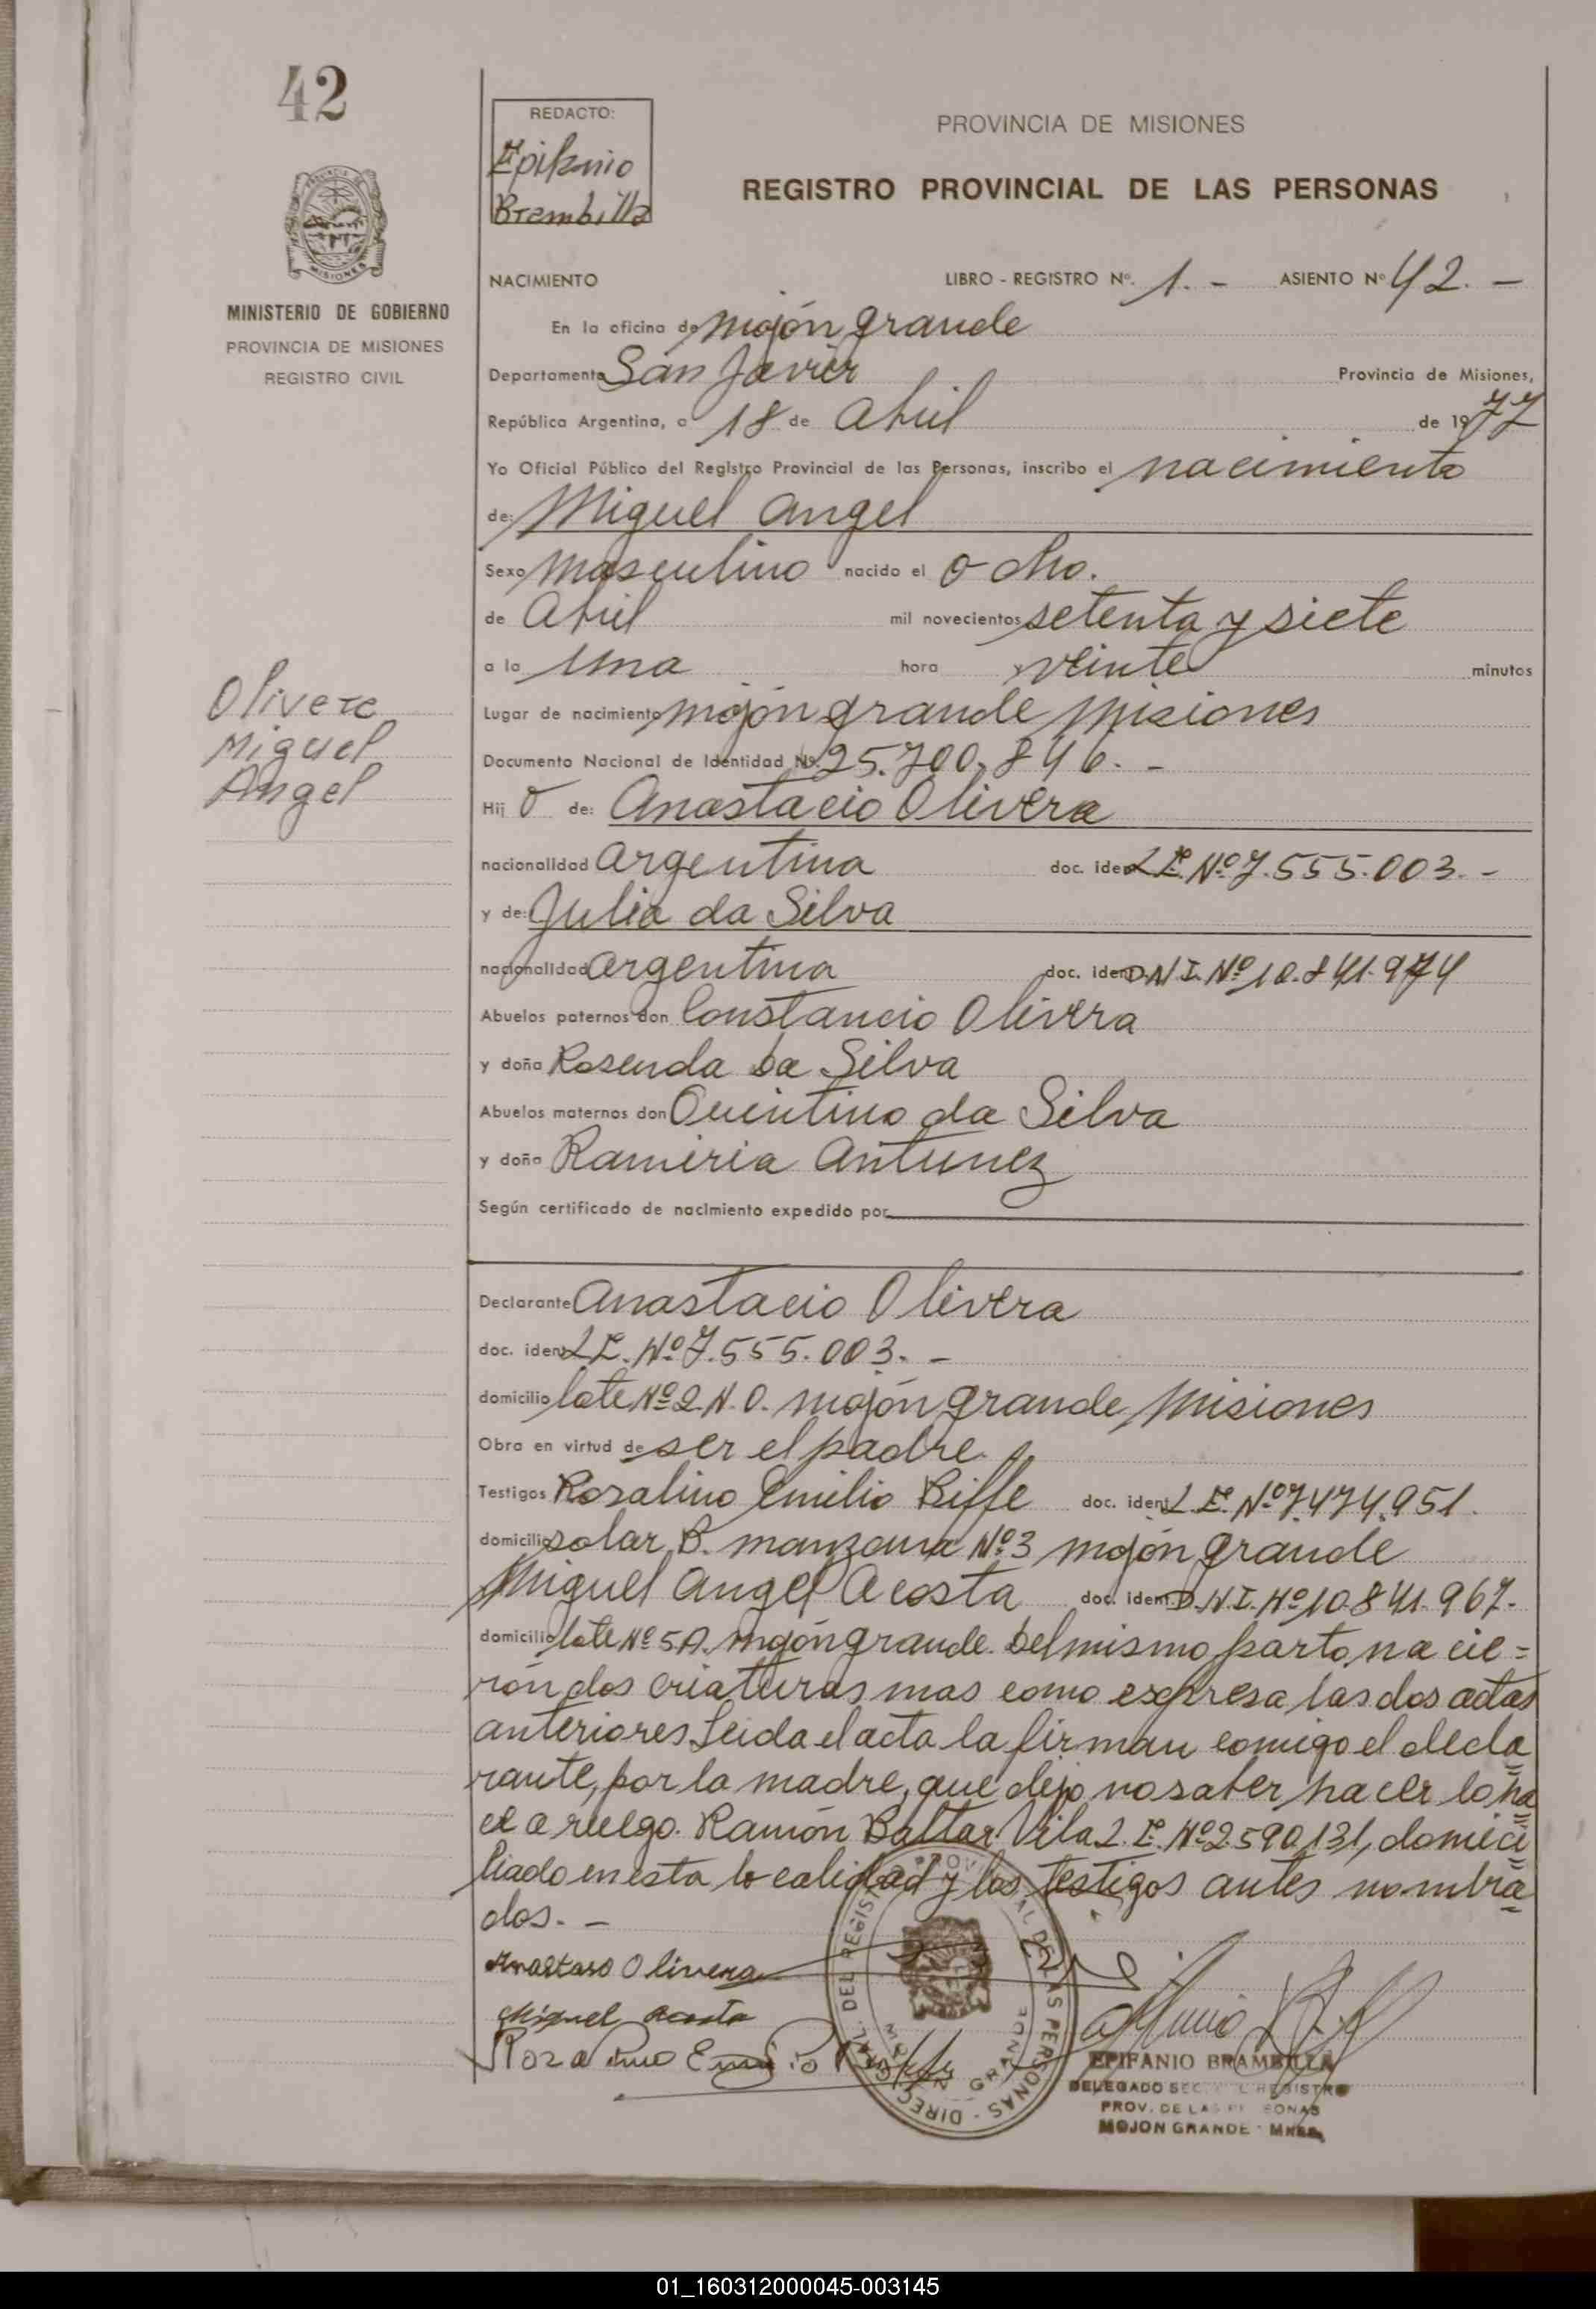 42
REDACTO:
Epifanio
Brambilla
PROVINCIA DE MISIONES
REGISTRO PROVINCIAL DE LAS PERSONAS
MINISTERIO DE GOBIERNO
PROVINCIA DE MISIONES
REGISTRO CIVIL
NACIMIENTO LIBRO - REGISTRO Nº. 1. - ASIENTO Nº 42. -
En la oficina de mojón grande
Departamento San Javier Provincia de Misiones,
República Argentina, a 18 de Abril de 1977
Yo Oficial Público del Registro Provincial de las Personas, inscribo el nacimiento
de: Miguel Angel
Sexo masculino nacido el ocho.
de Abril mil novecientos setenta y siete
a la una hora y veinte minutos
Olivera
Miguel
Angel
Lugar de nacimiento mojón grande Misiones
Documento Nacional de Identidad Nº. 25.700.846. -
Hij o de: Anastacio Olivera
nacionalidad argentina doc. iden L E. Nº 7.555.003. -
y de: Julia da Silva
nacionalidad argentina doc. iden D.N I. Nº 10.841.974
Abuelos paternos don Constancio Olivera
y doña Rosenda da Silva
Abuelos maternos don Quintino da Silva
y doña Ramiria Antunez
Según certificado de nacimiento expedido por
Declarante Anastacio Olivera
doc. iden L E. Nº 7.555.003. -
domicilio lote Nº 2. N. O. mojón grande Misiones
Obra en virtud de ser el padre.
Testigos Rosalino Emilio Riffe doc. ident L. E. Nº 7.474.951.
domicilio solar B. manzana Nº 3 mojón grande
Miguel Angel Acosta doc. ident. D.N.I. Nº 10.841.967.
domicilio lote Nº 5.A. mojón grande. Del mismo parto, na cie=
ron dos criaturas mas como expresa las dos actas
anteriores. Leida el acta la firman comigo el decla
rante, por la madre, que dejo no saber hacer lo ha
ce a ruego. Ramón Baltar Vila L. E. Nº 2.590.131, domici
liado en esta localidad y los testigos antes nombra
dos. -
Anastaso Olivera
Miguel Acosta
DIRECCION GRAL. DEL REGISTRO PROVINCIAL DE LAS PERSONAS
MOJON GRANDE
EPIFANIO BRAMBILLA
DELEGADO SECC. DEL REGISTRO
PROV. DE LAS PERSONAS
MOJON GRANDE - MNES.
01_160312000045-003145